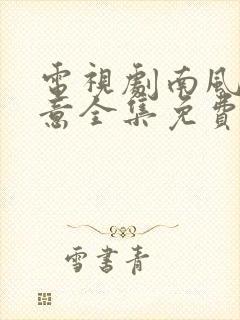 電視劇南風
意全集免費
雪書青